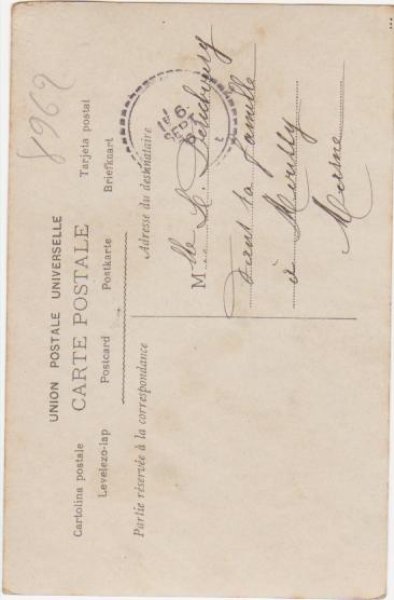 8969
UNION POSTALE UNIVERSELLE
CARTE POSTALE
Cartolina postale
Tarjeta postal
Levelezo-lap Postcard Postkarte Briefkaart
Partie réservée à la correspondance
Adresse du destinataire
6
SEPT
Mlle
dans sa famille
à
Marne